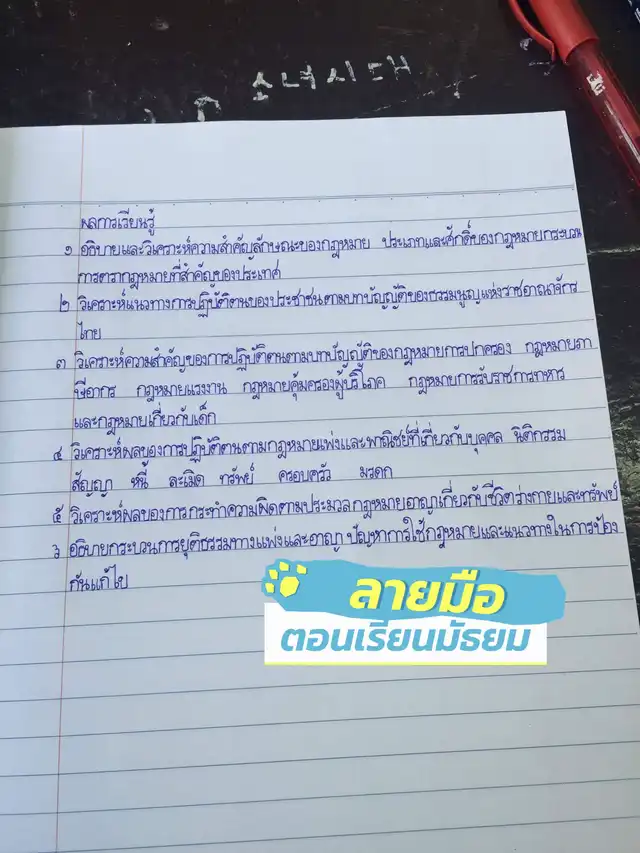 ผลการเรียนรู้
๑ อธิบายและวิเคราะห์ความสำคัญลักษณะของกฎหมาย ประเภทและศักดิ์ของกฎหมายกระบวน
การตรากฎหมายที่สำคัญของประเทศ
๒ วิเคราะห์แนวทางการปฏิบัติตนของประชาชนตามบทบัญญัติของธรรมนูญแห่งราชอาณาจักร
ไทย
๓ วิเคราะห์ความสำคัญของการปฏิบัติตนตามบทบัญญัติของกฎหมายการปกครอง กฎหมายภา
ษีอากร กฎหมายแรงงาน กฎหมายคุ้มครองผู้บริโภค กฎหมายการรับราชการทหาร
และกฎหมายเกี่ยวกับเด็ก
๔ วิเคราะห์ผลของการปฏิบัติตนตามกฎหมายแพ่งและพาณิชย์ที่เกี่ยวกับบุคคล นิติกรรม
สัญญา หนี้ ละเมิด ทรัพย์ ครอบครัว มรดก
๕ วิเคราะห์ผลของการกระทำความผิดตามประมวลกฎหมายอาญาเกี่ยวกับชีวิตร่างกายและทรัพย์
๖ อธิบายกระบวนการยุติธรรมทางแพ่งและอาญา ปัญหาการใช้กฎหมายและแนวทางในการป้อง
กันแก้ไข
ลายมือ
ตอนเรียนมัธยม